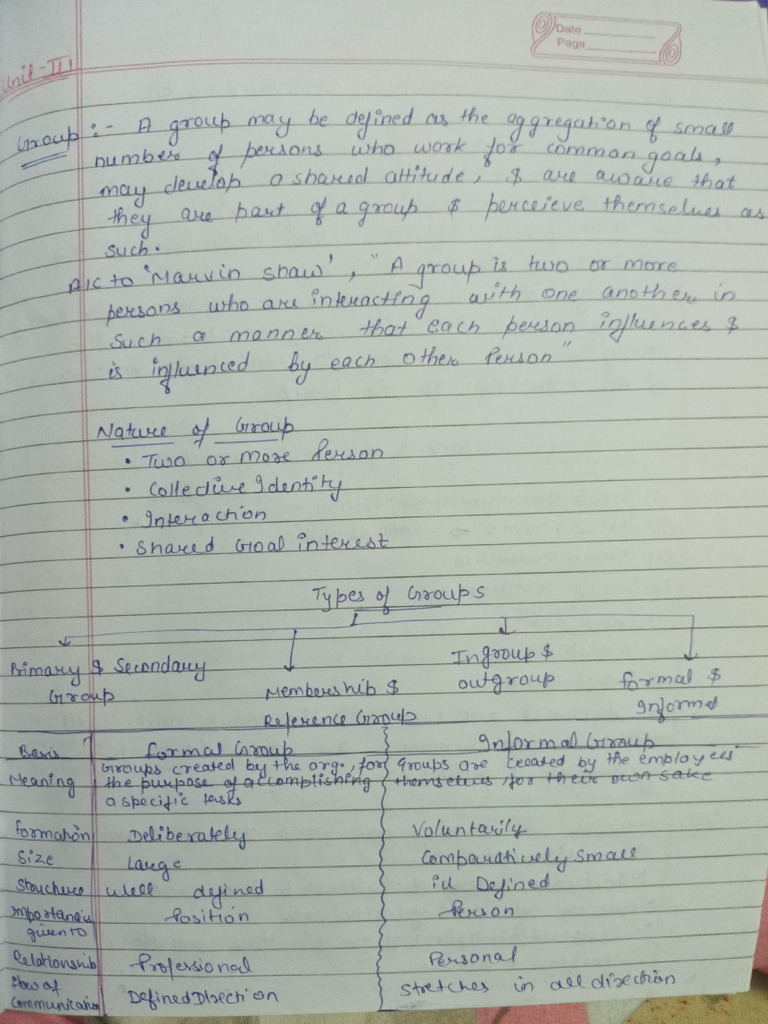 Date
Page
Unit-III
Group :- A group may be defined as the aggregation of small
number of persons who work for common goals,
may develop a shared attitude, & are aware that
they are part of a group & perceieve themselves as
such.
A/c to 'Marvin Shaw', "A group is two or more
persons who are interacting with one another in
such a manner that each person influences &
is influenced by each other Person"
Nature of Group
• Two or more Person
• Collective Identity
• Interaction
• Shared Goal interest
Types of Groups
Primary & Secondary Group
Membership & Reference Group
Ingroup & outgroup
formal & Informal
Basis Formal Group Informal Group
Meaning Groups created by the org., for Groups are created by the employees
the purpose of accomplishing themselves for their own sake
a specific tasks
Formation Deliberately Voluntarily
Size Large Comparatively Small
Structure Well defined ill Defined
Importance given to Position Person
Relationship Professional Personal
Flow of Communication Defined Direction Stretches in all direction